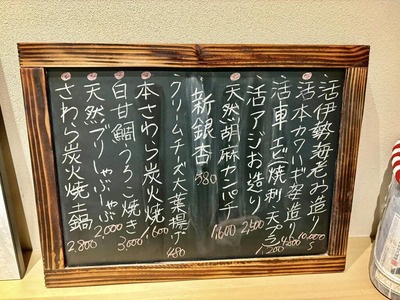 活伊勢海老お造り 10,000〜
活本カワハギ姿造り 4,800
活車エビ(焼・刺・天プラ) 1,200
活アジお造り 2,500
天然胡麻カンパチ 1,600
新銀杏 580
クリームチーズ大葉揚げ 480
本さわら炭火焼 1,600
白甘鯛うろこ焼き 3,000
天然ブリしゃぶしゃぶ 2,000
さわら炭火焼土鍋 2,800